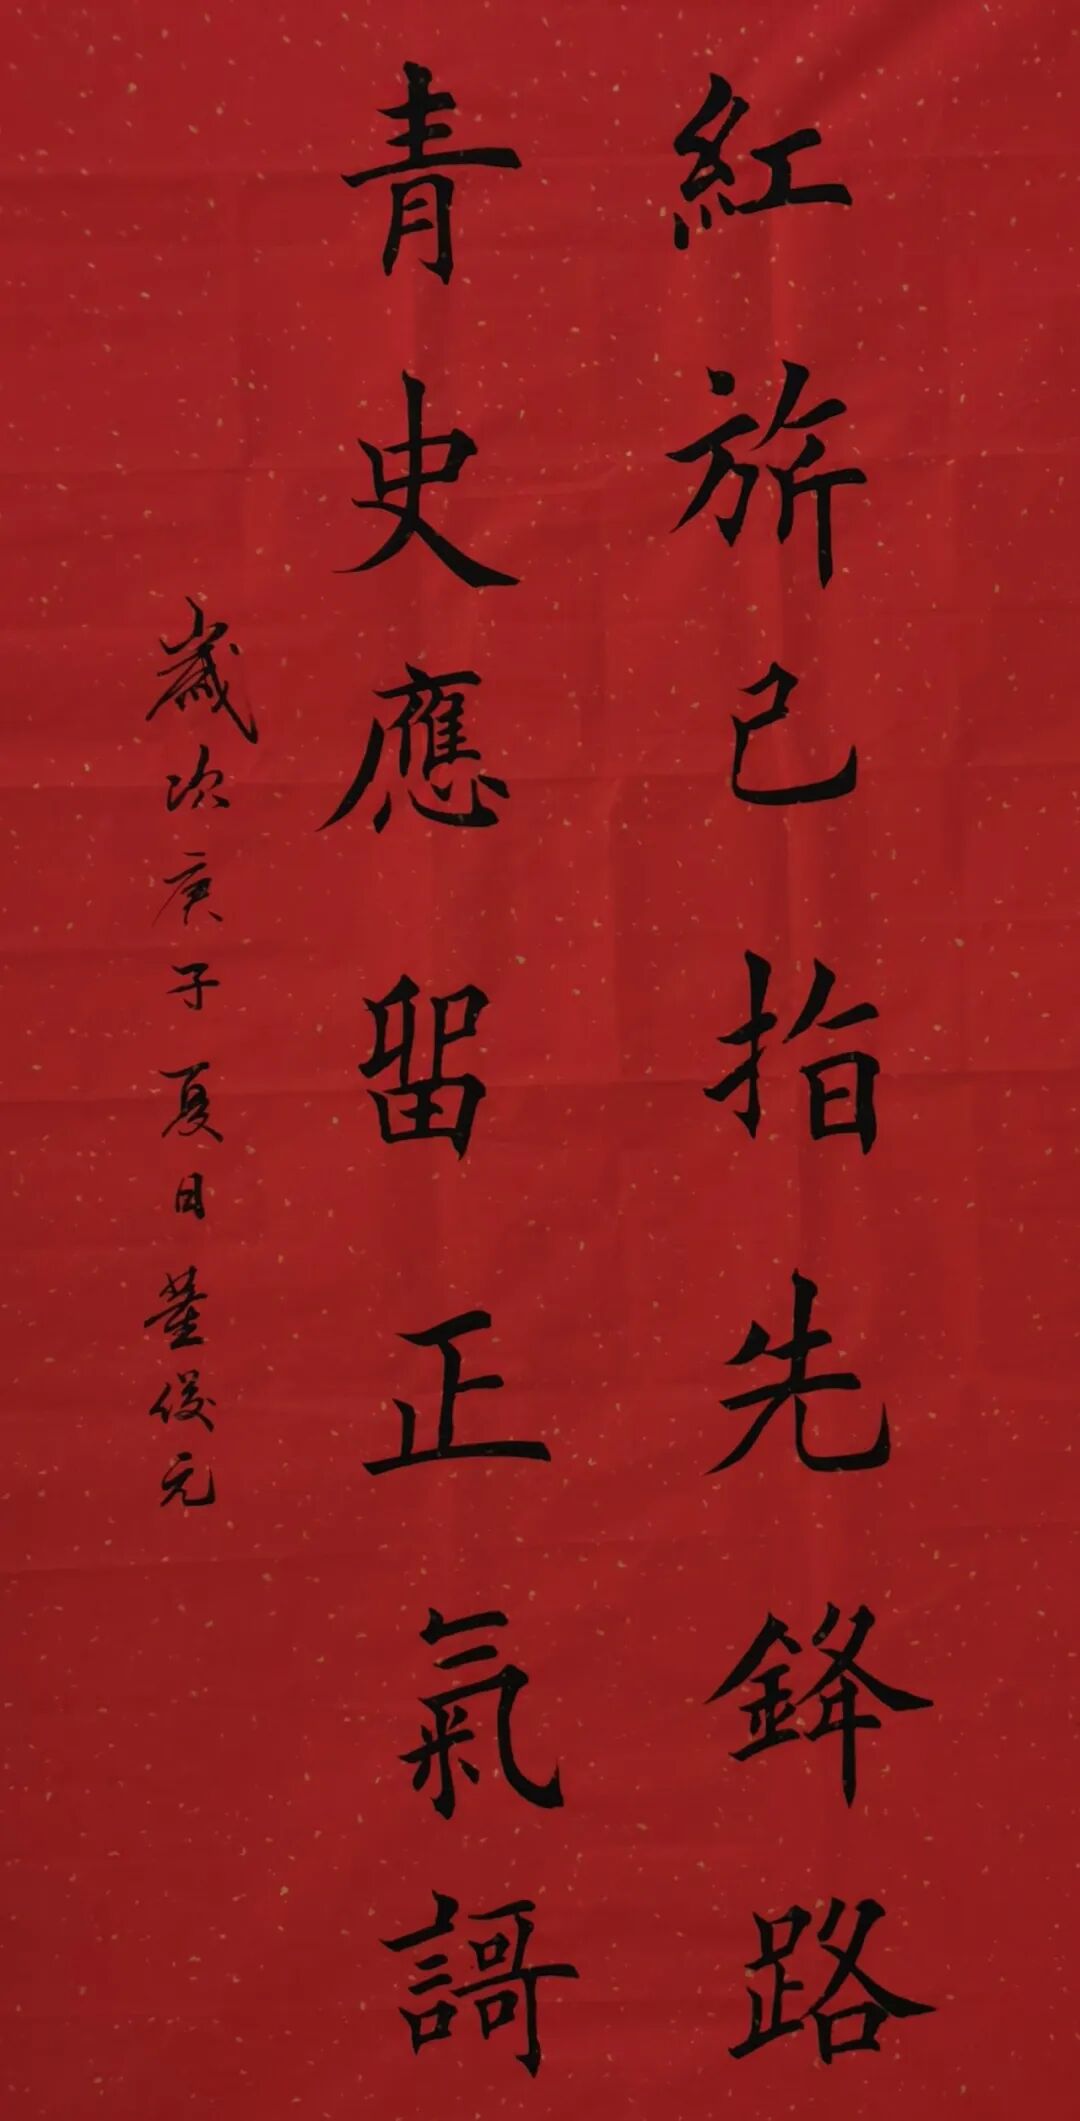 紅旂已指先鋒路
青史應留正氣謌
歲次庚子夏日董俊元